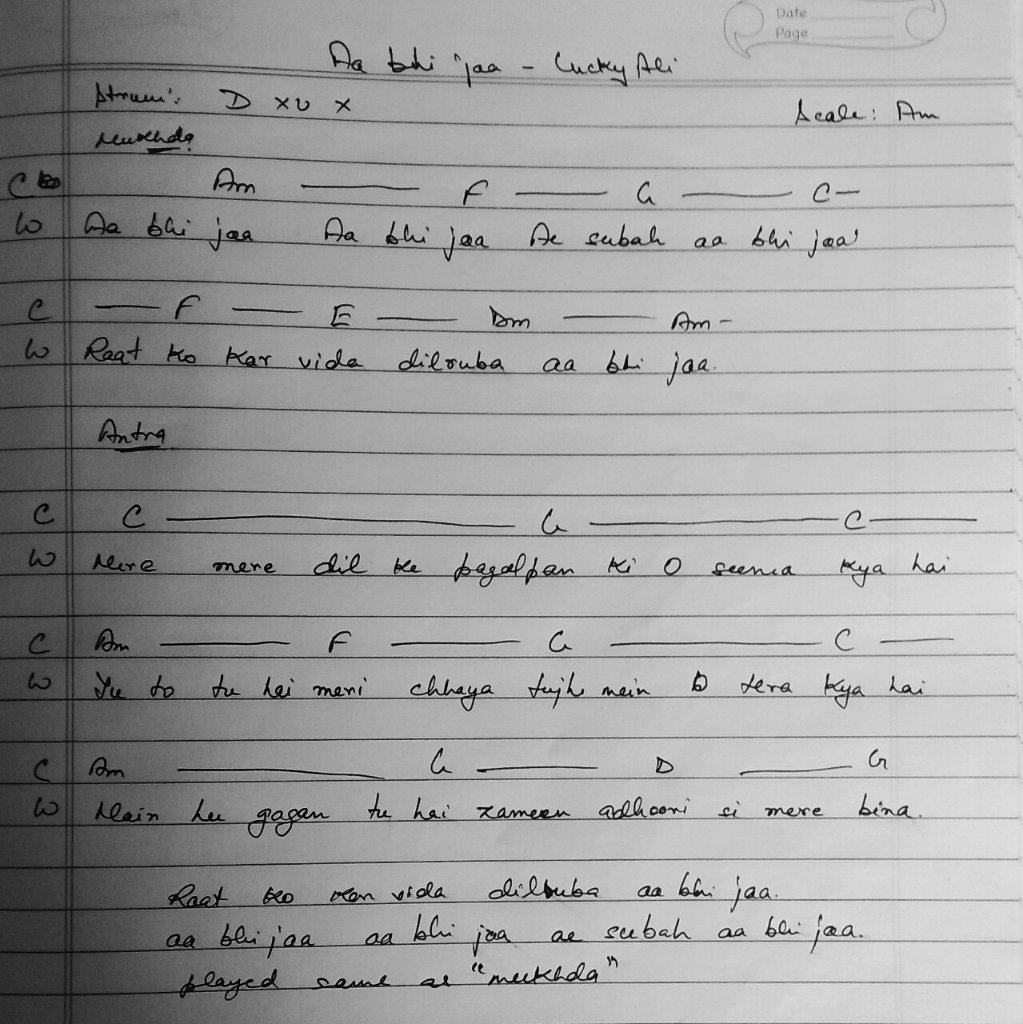 Date
Page
Aa bhi jaa - Lucky Ali
Strum: D xU x
Scale: Am
Mukhda
C Am — F — G — C –
W Aa bhi jaa Aa bhi jaa Ae subah aa bhi jaa
C — F — E — Dm — Am –
W Raat ko kar vida dilruba aa bhi jaa.
Antra
C C — G — C —
W Mere mere dil ke pagalpan ki O seema kya hai
C Am — F — G — C —
W Yu to tu hai meri chhaya tujh mein tera kya hai
C Am — G — D — G
W Main hu gagan tu hai zameen adhoori si mere bina.
Raat ko kar vida dilruba aa bhi jaa.
aa bhi jaa aa bhi jaa ae subah aa bhi jaa.
played same as "mukhda"